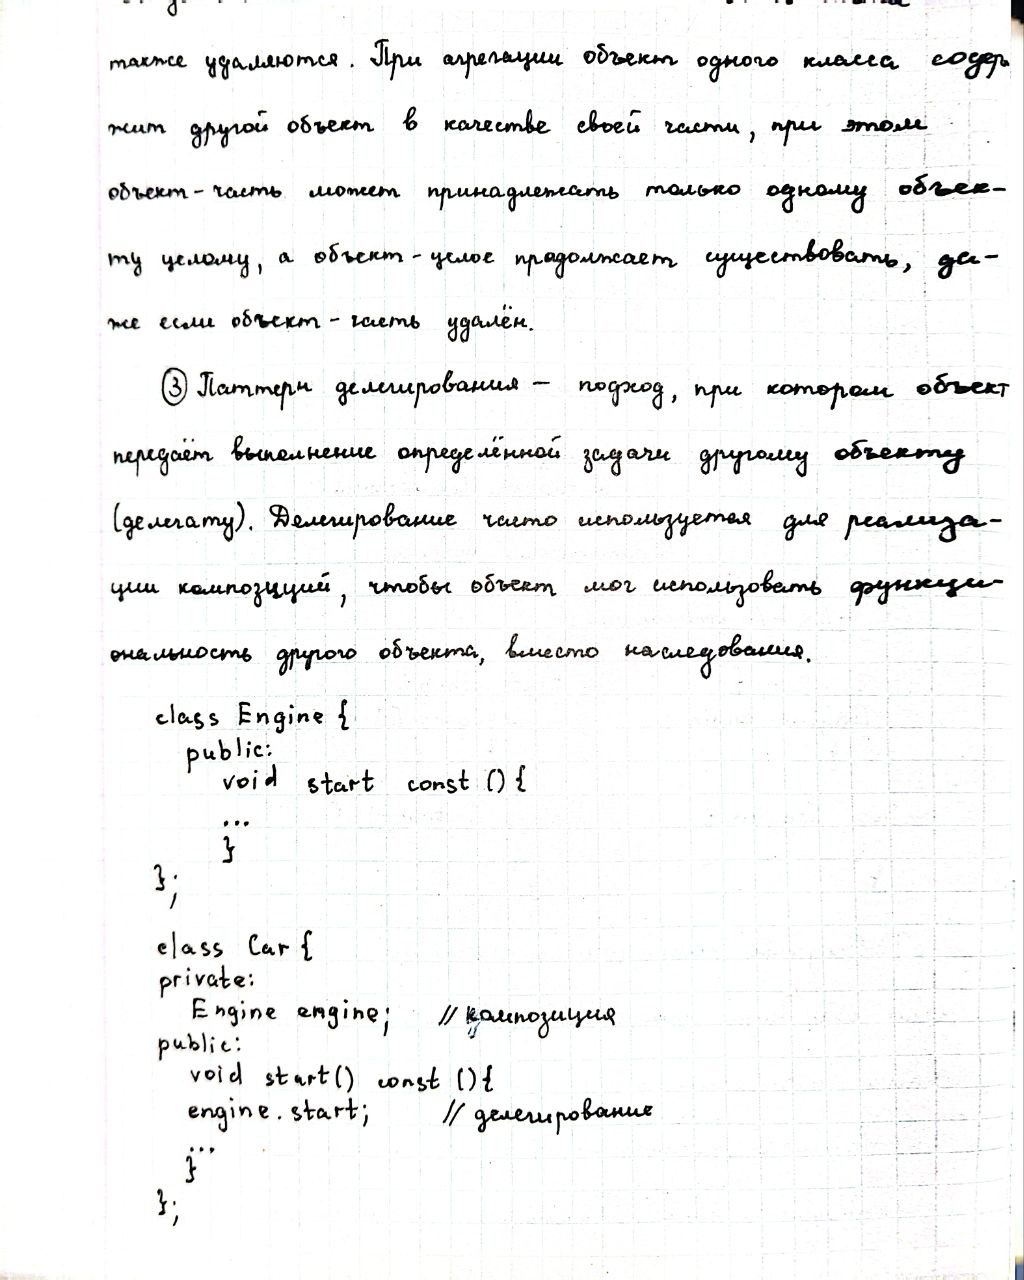 также удаляются. При агрегации объект одного класса содер
жит другой объект в качестве своей части, при этом
объект-часть может принадлежать только одному объек-
ту целому, а объект-целое продолжает существовать, да-
же если объект-часть удалён.
③ Паттерн делегирования — подход, при котором объект
передаёт выполнение определённой задачи другому объекту
(делегату). Делегирование часто используется для реализа-
ции композиций, чтобы объект мог использовать функци-
ональность другого объекта, вместо наследования.
class Engine {
public:
void start const () {
...
}
};
class Car {
private:
Engine engine; // композиция
public:
void start() const () {
engine.start; // делегирование
...
}
};